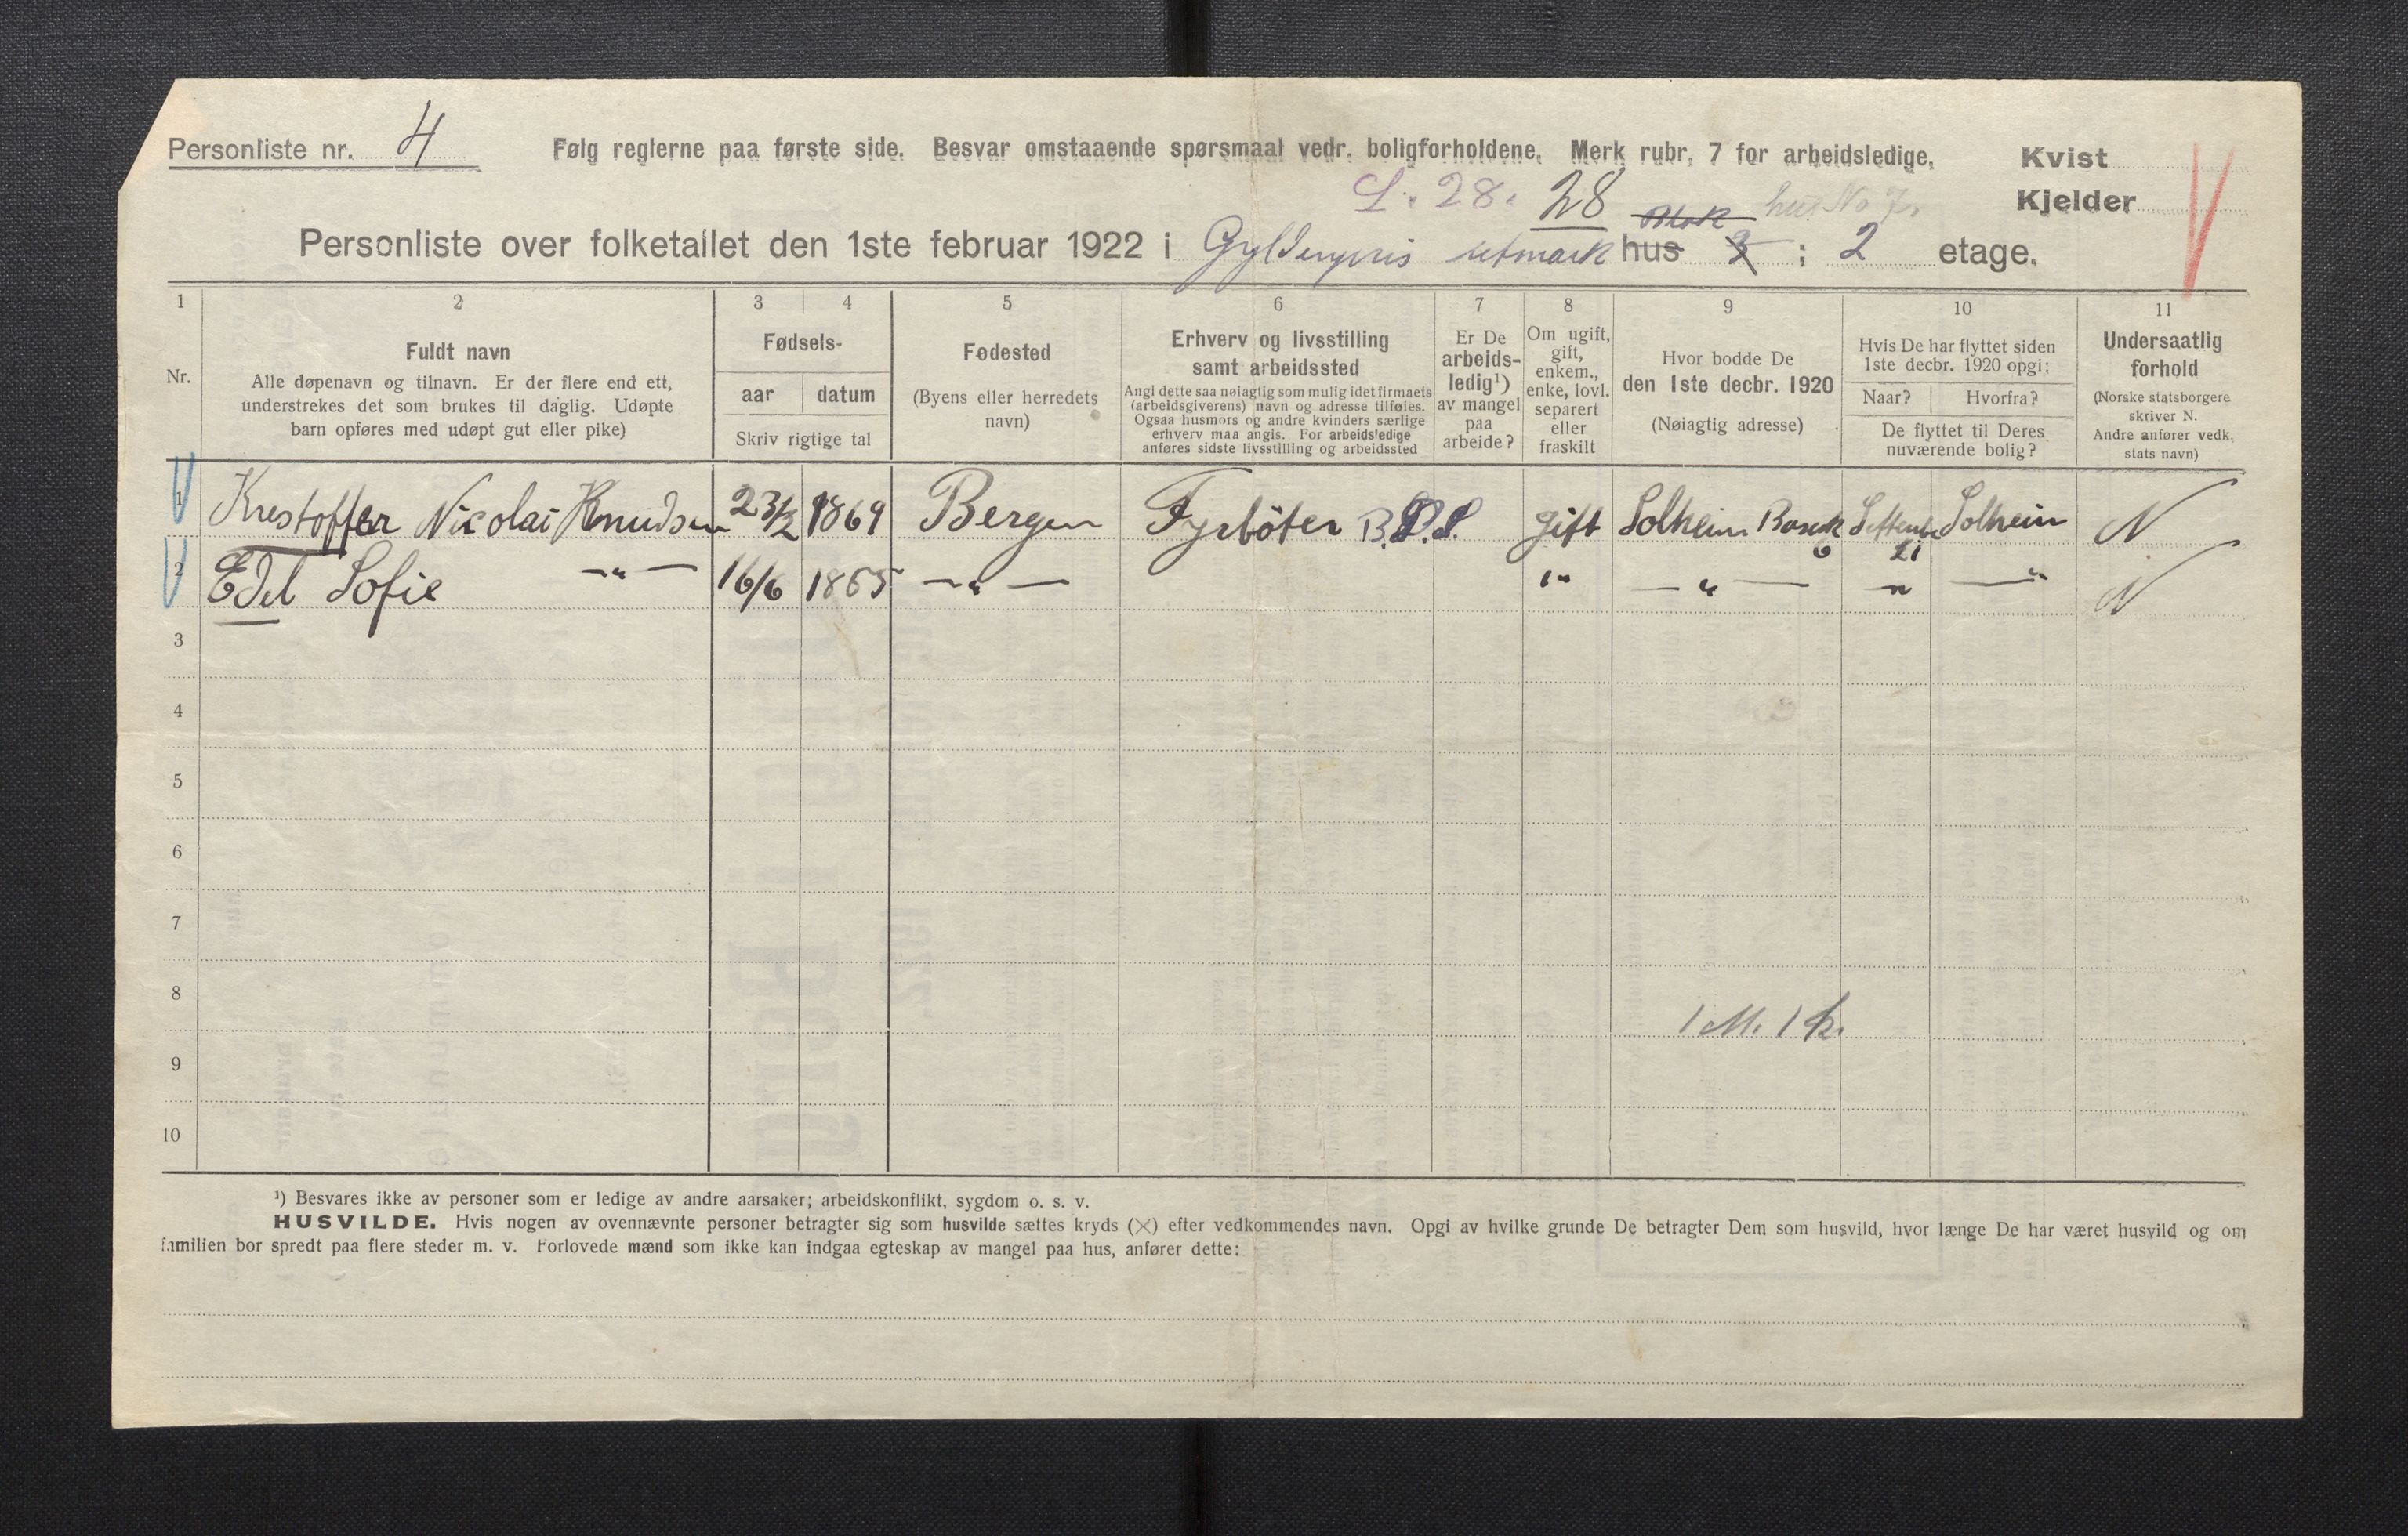 Personliste nr. 4 Følg reglerne paa første side. Besvar omstaaende spørsmaal vedr. boligforholdene. Merk rubr. 7 for arbeidsledige. Kvist
L. 28. 28 Blok hus No 7. Kjelder
Personliste over folketallet den 1ste februar 1922 i Gyldenpris utmark hus 3 ; 2 etage.
1 2 3 4 5 6 7 8 9 10 11
Nr.
Fuldt navn
Alle døpenavn og tilnavn. Er der flere end ett,
understrekes det som brukes til daglig. Udøpte
barn opføres med udøpt gut eller pike)
Fødsels-
aar datum
Skriv rigtige tal
Fødested
(Byens eller herredets
navn)
Erhverv og livsstilling
samt arbeidssted
Angi dette saa nøiagtig som mulig idet firmaets
(arbeidsgiverens) navn og adresse tilføies.
Ogsaa husmors og andre kvinders særlige
erhverv maa angis. For arbeidsledige
anføres sidste livsstilling og arbeidssted
Er De
arbeids-
ledig¹)
av mangel
paa
arbeide?
Om ugift,
gift,
enkem.,
enke, lovl.
separert
eller
fraskilt
Hvor bodde De
den 1ste decbr. 1920
(Nøiagtig adresse)
Hvis De har flyttet siden
1ste decbr. 1920 opgi:
Naar? Hvorfra?
De flyttet til Deres
nuværende bolig?
Undersaatlig
forhold
(Norske statsborgere
skriver N.
Andre anfører vedk.
stats navn)
1 Krestoffer Nicolai Knudsen 23/2 1869 Bergen Fyrböter B.D.S. gift Solheim Barak 6 Septemb 21 Solheim N
2 Edel Sofie —"— 16/6 1865 —"— " —"— " —"— N
3
4
5
6
7
8
1 M. 1 k.
9
10
¹) Besvares ikke av personer som er ledige av andre aarsaker; arbeidskonflikt, sygdom o. s. v.
HUSVILDE. Hvis nogen av ovennævnte personer betragter sig som husvilde sættes kryds (×) efter vedkommendes navn. Opgi av hvilke grunde De betragter Dem som husvild, hvor længe De har været husvild og om
familien bor spredt paa flere steder m. v. Forlovede mænd som ikke kan indgaa egteskap av mangel paa hus, anfører dette: